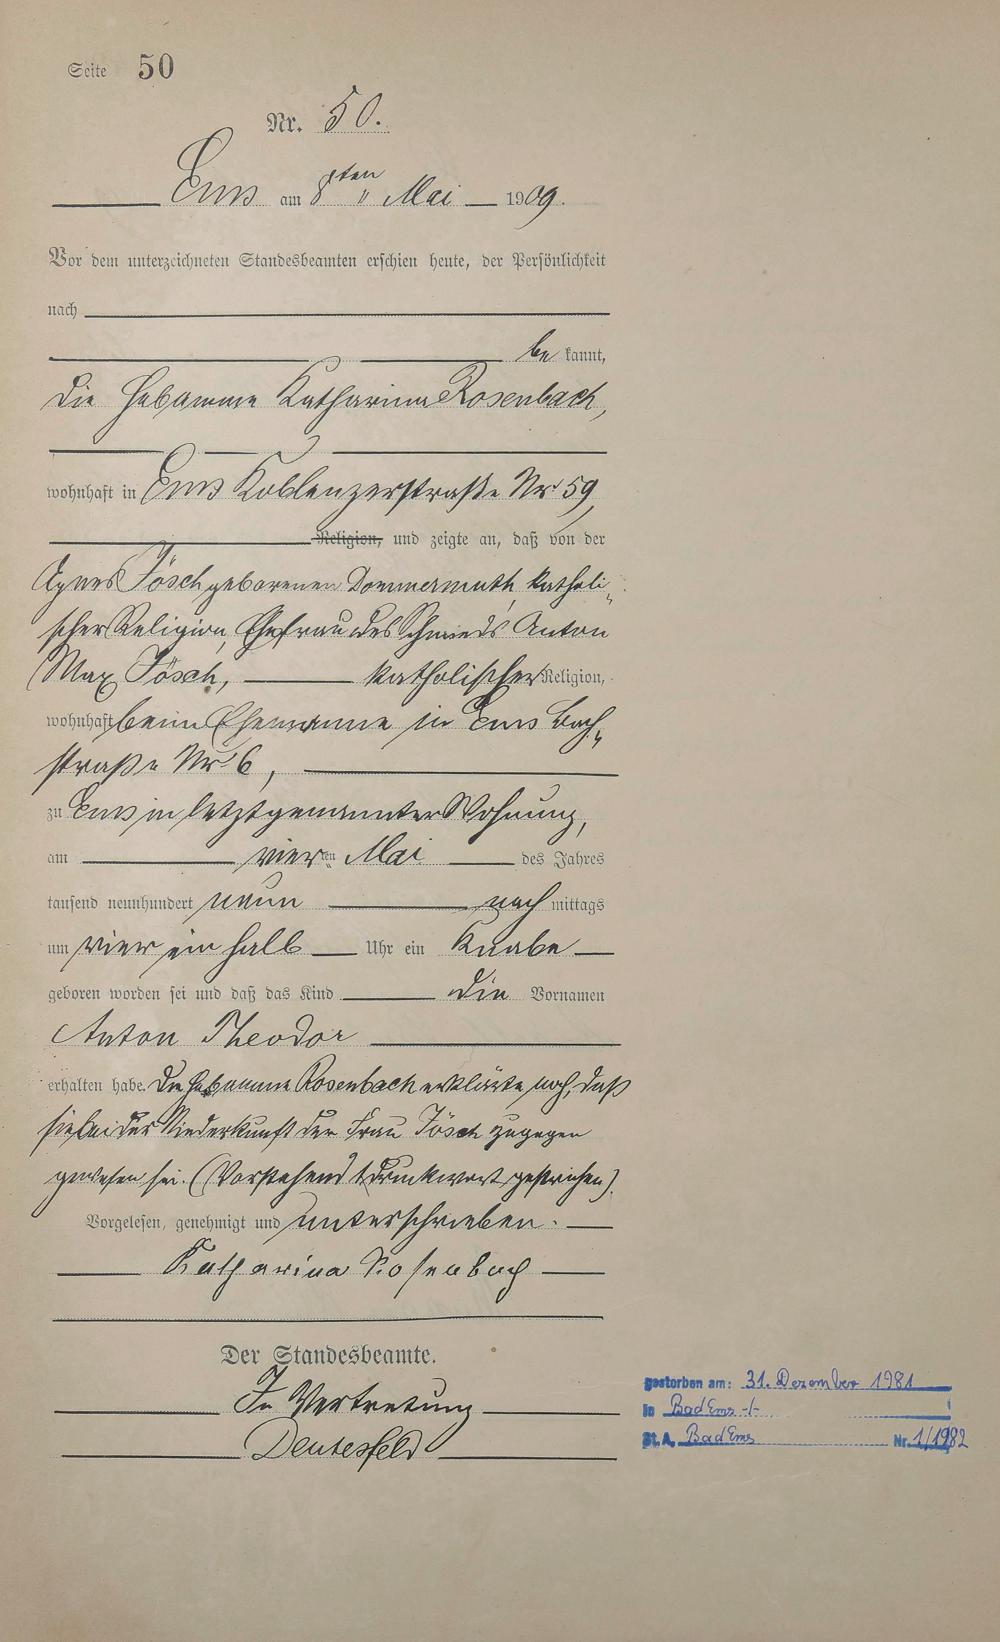 Seite 50
Nr. 50.
Ems am 8ten " Mai 1909.
Vor dem unterzeichneten Standesbeamten erschien heute, der Persönlichkeit
nach
be kannt,
die Hebamme Katharina Rosenbach,
wohnhaft in Ems Koblenzerstraße Nr 59,
Religion, und zeigte an, daß von der
Agnes Jösch geborenen Dommermuth, katholi„
scher Religion, Ehefrau des Schmieds Anton
Max Jösch, katholischer Religion,
wohnhaft beim Ehemanne in Ems Bach„
straße Nr 6,
zu Ems in letztgenannter Wohnung,
am vier ten Mai des Jahres
tausend neunhundert neun nach mittags
um vier ein halb Uhr ein Knabe
geboren worden sei und daß das Kind die Vornamen
Anton Theodor
erhalten habe. Die Hebamme Rosenbach erklärte noch, daß
sie bei der Niederkunft der Frau Jösch zugegen
gewesen sei. (Vorstehend 1 Druckwort gestrichen).
Vorgelesen, genehmigt und unterschrieben.
Katharina Rosenbach
Der Standesbeamte.
In Vertretung
Deutesfeld
gestorben am: 31. Dezember 1981
in Bad Ems -/-
St.A. Bad Ems Nr. 1/1982